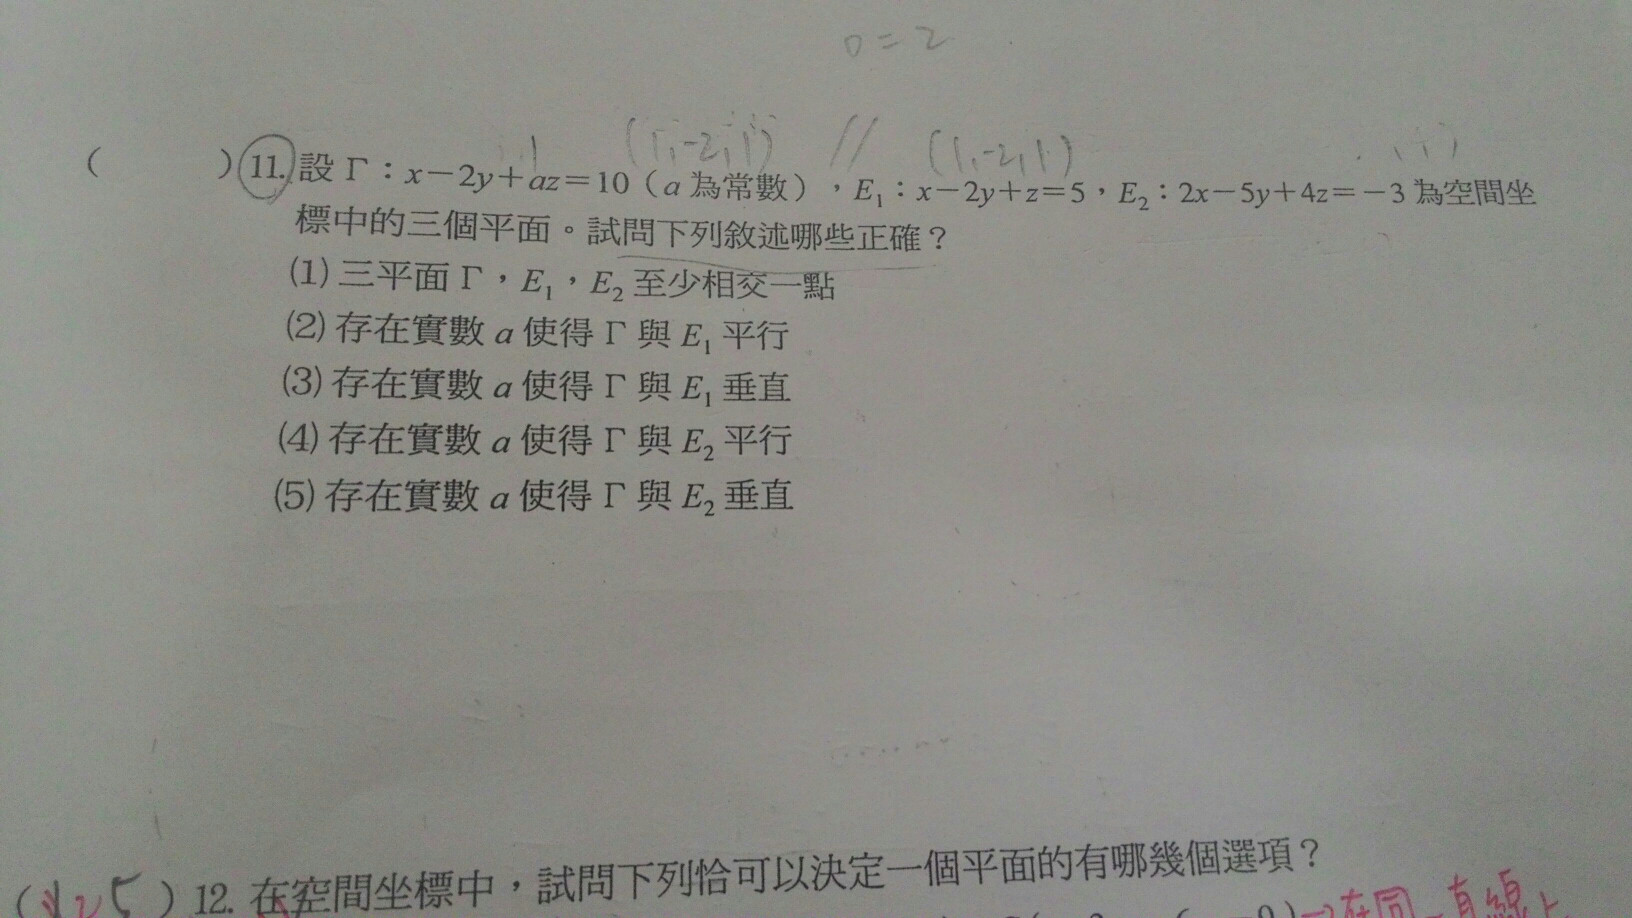 0=2
(1,-2,1) // (1,-2,1)
( )11. 設 Γ：x－2y＋az＝10（a 為常數），E₁：x－2y＋z＝5，E₂：2x－5y＋4z＝－3 為空間坐
標中的三個平面。試問下列敘述哪些正確？
(1) 三平面 Γ，E₁，E₂ 至少相交一點
(2) 存在實數 a 使得 Γ 與 E₁ 平行
(3) 存在實數 a 使得 Γ 與 E₁ 垂直
(4) 存在實數 a 使得 Γ 與 E₂ 平行
(5) 存在實數 a 使得 Γ 與 E₂ 垂直
( 5 ) 12. 在空間坐標中，試問下列恰可以決定一個平面的有哪幾個選項？
在同一直線上